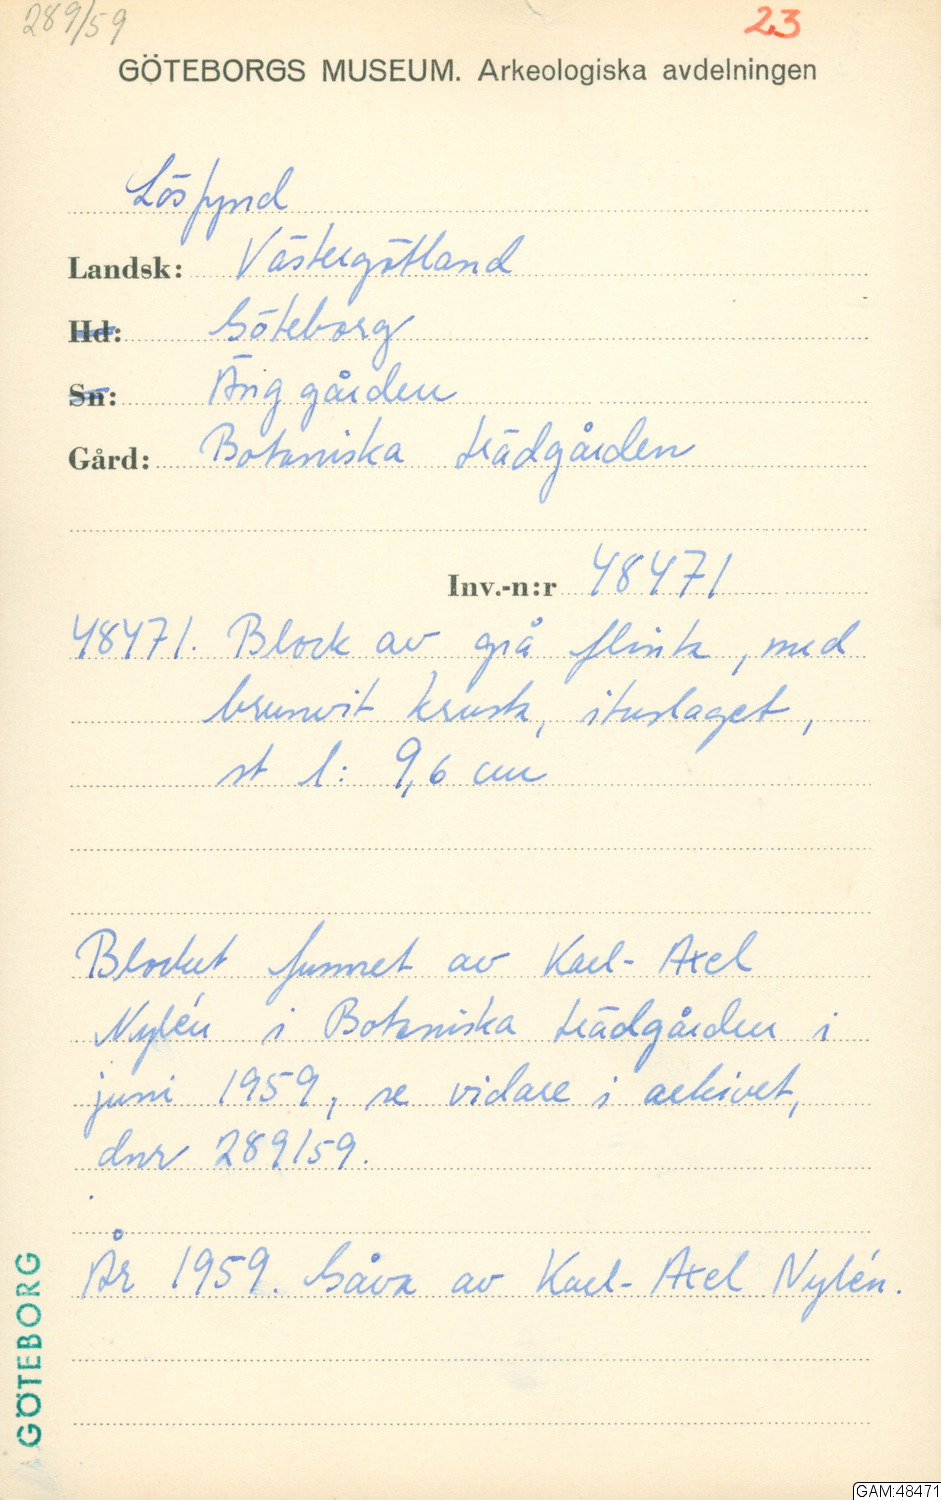 289/59
23
GÖTEBORGS MUSEUM. Arkeologiska avdelningen
Lösfynd
Landsk: Västergötland
Hd: Göteborg
Sn: Änggården
Gård: Botaniska trädgården
Inv.-n:r 48471
48471. Block av grå flinta, med
brunvit krusta, ituslaget,
st l: 9,6 cm
Blocket funnet av Karl-Axel
Nylén i Botaniska trädgården i
juni 1959, se vidare i arkivet,
dnr 289/59.
År 1959. Gåva av Karl-Axel Nylén.
GÖTEBORG
GAM:48471